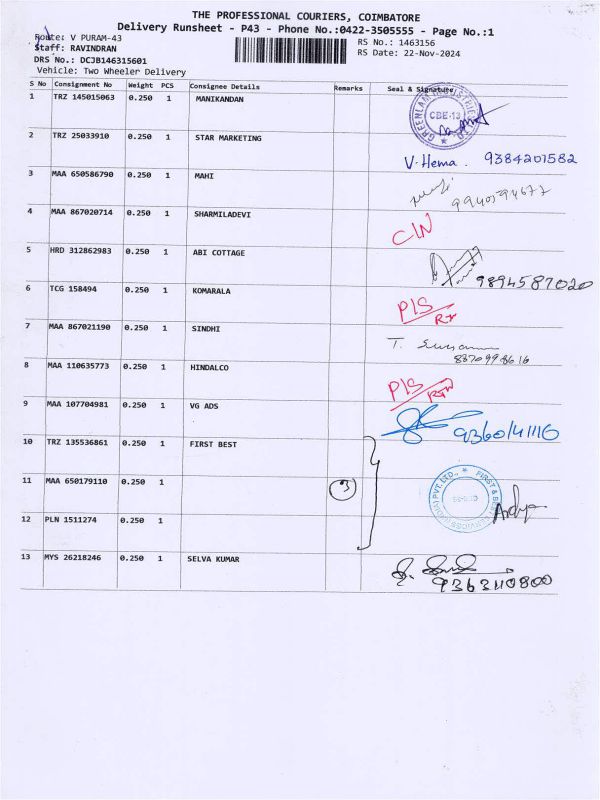 THE PROFESSIONAL COURIERS, COIMBATORE
Delivery Runsheet - P43 - Phone No.:0422-3505555 - Page No.:1
Route: V PURAM-43
RS No.: 1463156
Staff: RAVINDRAN
RS Date: 22-Nov-2024
DRS No.: DCJB146315601
Vehicle: Two Wheeler Delivery
S No Consignment No Weight PCS Consignee Details Remarks Seal & Signature
1 TRZ 145015063 0.250 1 MANIKANDAN
GREENLAM INDUSTRIES LTD
CBE-13
2 TRZ 25033910 0.250 1 STAR MARKETING V. Hema. 9384201582
3 MAA 650586790 0.250 1 MAHI
4 MAA 867020714 0.250 1 SHARMILADEVI C/N
5 HRD 312862983 0.250 1 ABI COTTAGE 9894587020
6 TCG 158494 0.250 1 KOMARALA P/S
7 MAA 867021190 0.250 1 SINDHI T.
8 MAA 110635773 0.250 1 HINDALCO P/S
9 MAA 107704981 0.250 1 VG ADS 9360141110
10 TRZ 135536861 0.250 1 FIRST BEST
11 MAA 650179110 0.250 1 3
12 PLN 1511274 0.250 1
13 MYS 26218246 0.250 1 SELVA KUMAR